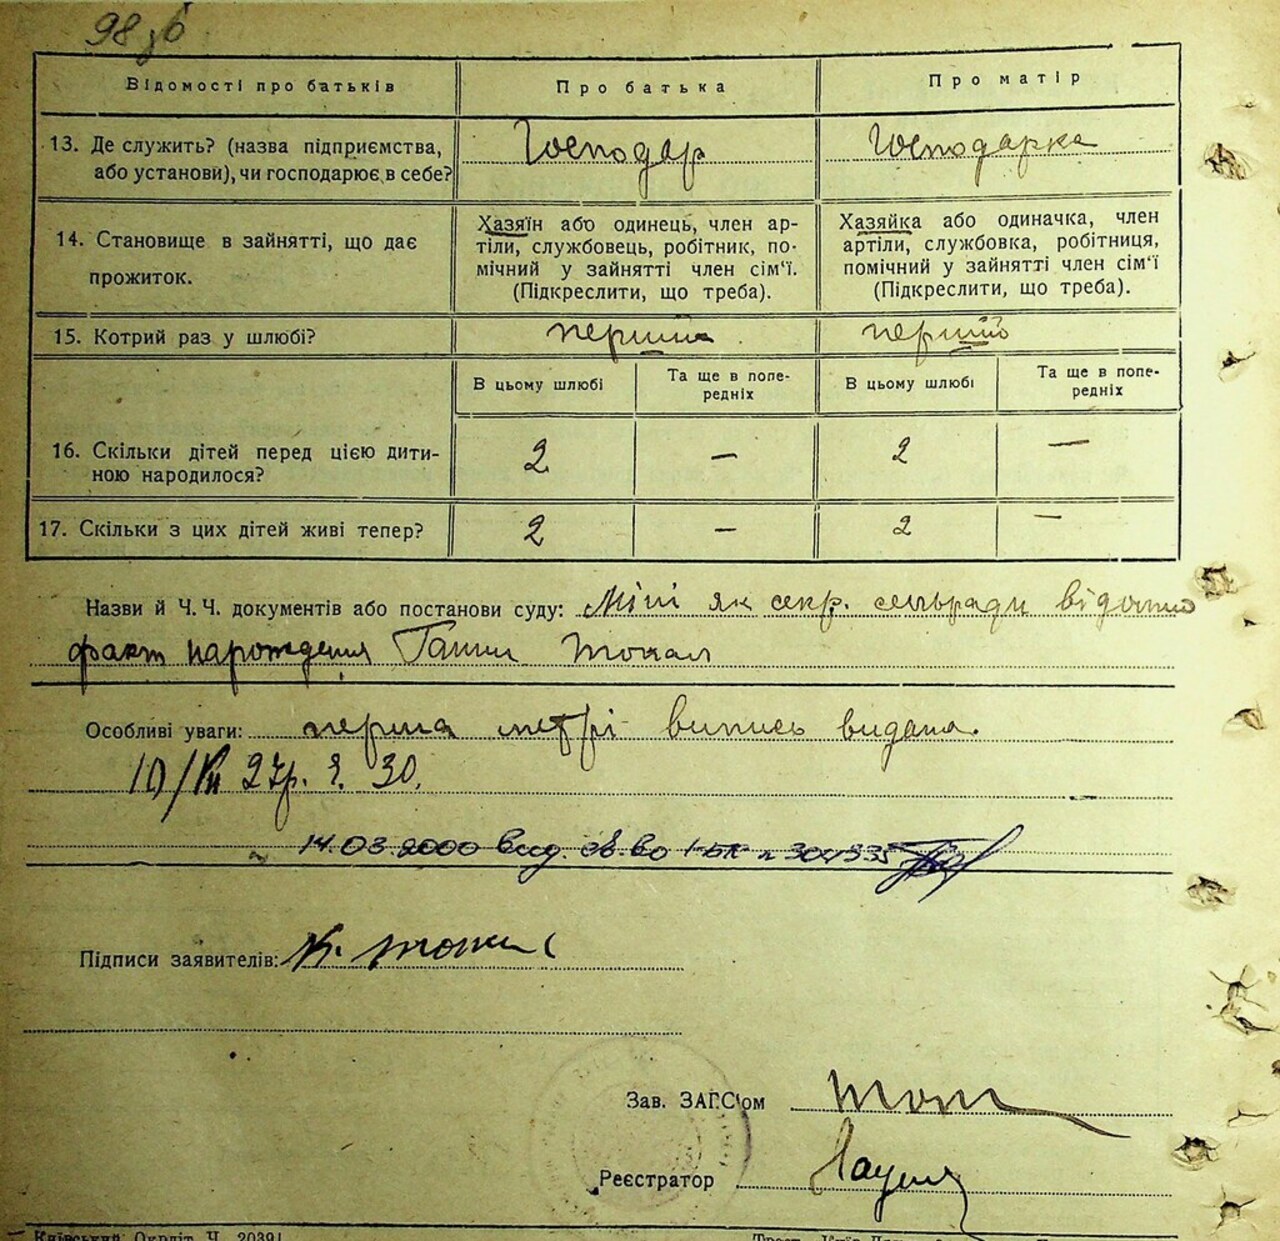 98 зб
Відомості про батьків
Про батька
Про матір
13. Де служить? (назва підприємства,
або установи), чи господарює в себе?
Господар
Господарка
14. Становище в зайнятті, що дає
прожиток.
Хазяїн або одинець, член ар-
тіли, службовець, робітник, по-
мічний у зайнятті член сім'ї.
(Підкреслити, що треба).
Хазяйка або одиначка, член
артіли, службовка, робітниця,
помічний у зайнятті член сім'ї
(Підкреслити, що треба).
15. Котрий раз у шлюбі?
В цьому шлюбі
Та ще в попе-
редніх
В цьому шлюбі
Та ще в попе-
редніх
16. Скільки дітей перед цією дити-
ною народилося?
2 — 2 —
17. Скільки з цих дітей живі тепер?
2 — 2 —
Назви й Ч. Ч. документів або постанови суду: Міні як секр. сельради відомо
факт нарождения Ганни
Особливі уваги: перша метрі- випись видана.
27р. 30.
14.03.2000 вид. св.во
Підписи заявителів:
Зав. ЗАГС'ом
Реєстратор
Київський Окрліт Ч. 20391